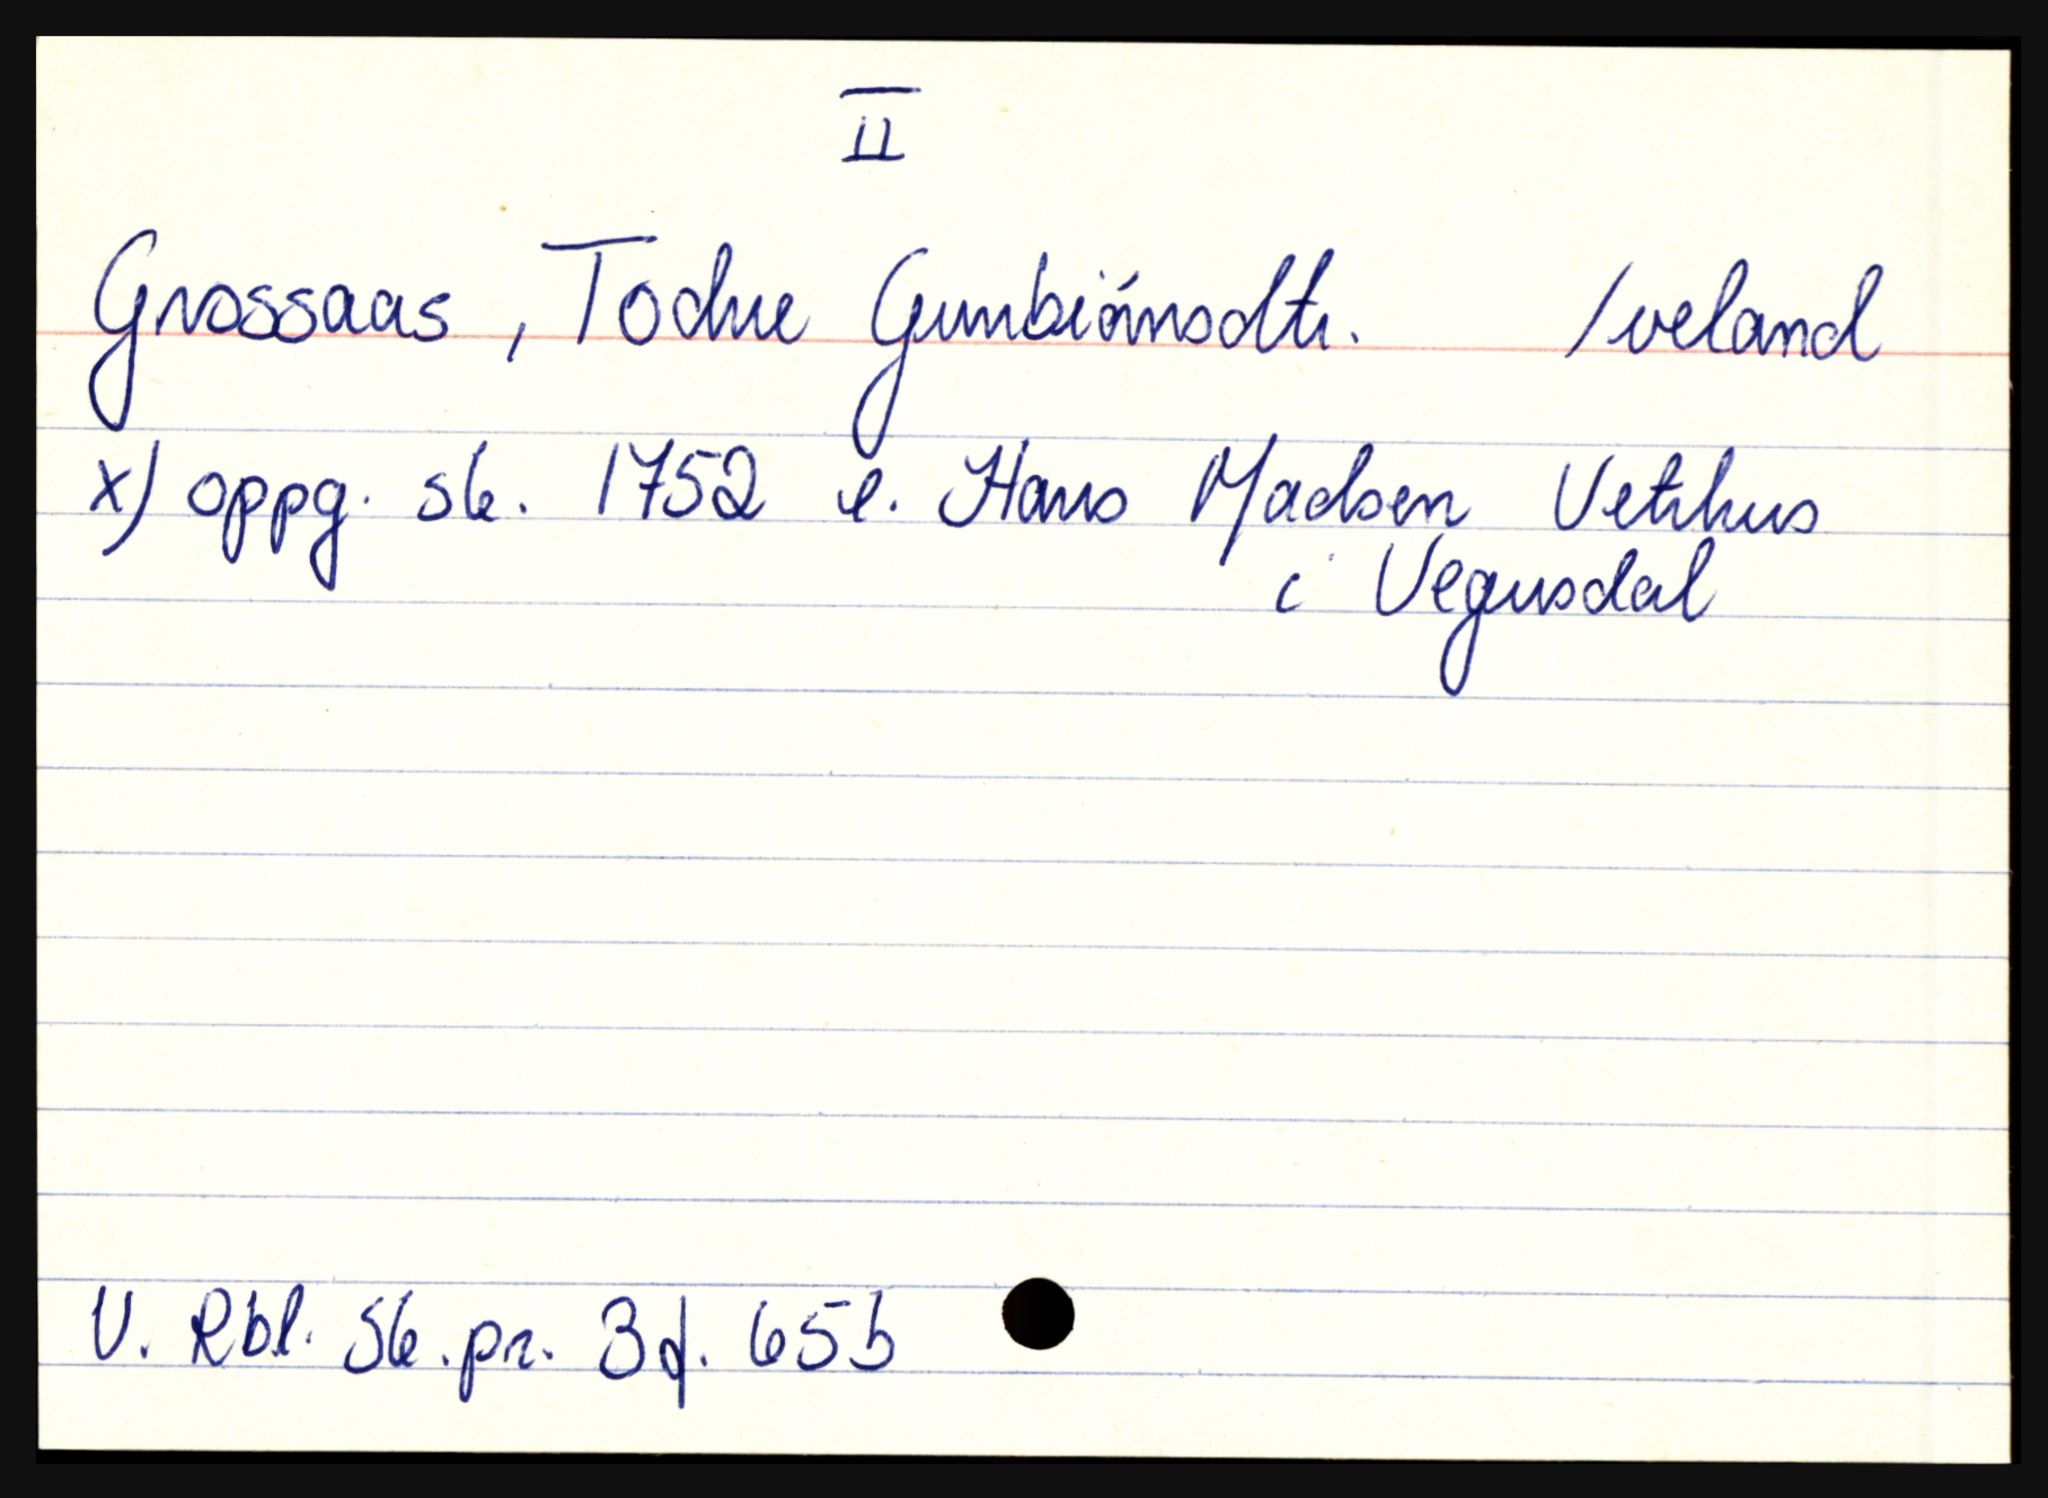 II
Grossaas, Todne Gunbiörnsdtr. Iveland
x) oppg. sk. 1752 e. Hans Madsen Vetrhus
i Vegusdal
V. Rbl. Sk.pr. 3 f. 65b